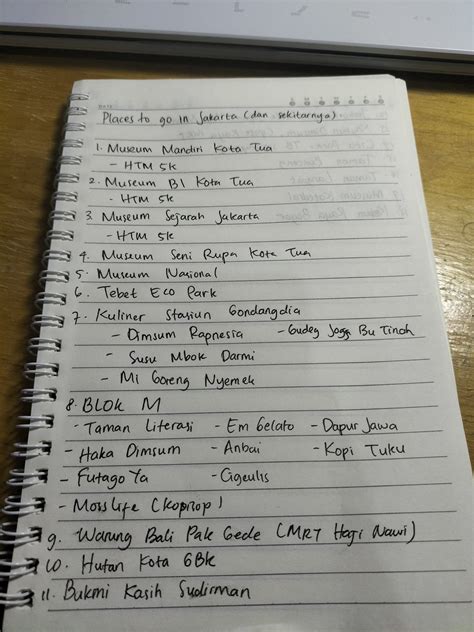 Places to go in Jakarta (dan sekitarnya)
1. Museum Mandiri Kota Tua
- HTM 5k
2. Museum BI Kota Tua
- HTM 5k
3. Museum Sejarah Jakarta
- HTM 5k
4. Museum Seni Rupa Kota Tua
5. Museum Nasional
6. Tebet Eco Park
7. Kuliner Stasiun Gondangdia
- Dimsum Rapnesia - Gudeg Jogja Bu Tinah
- Susu Mbok Darmi
- Mi Goreng Nyemek
8. BLOK M
- Taman Literasi - Em Gelato - Dapur Jawa
- Haka Dimsum - Anbai - Kopi Tuku
- Futago Ya - Cigeulis
- Morslife
9. Warung Bali Pak Gede (MRT Haji Nawi)
10. Hutan Kota GBK
11. Bukmi Kasih Sudirman